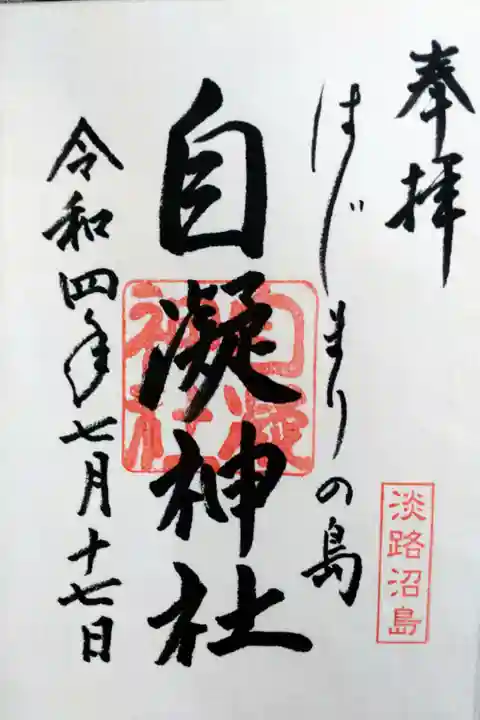 奉拝
淡路沼島
はじまりの島
自凝神社
自凝
神社
令和四年七月十七日